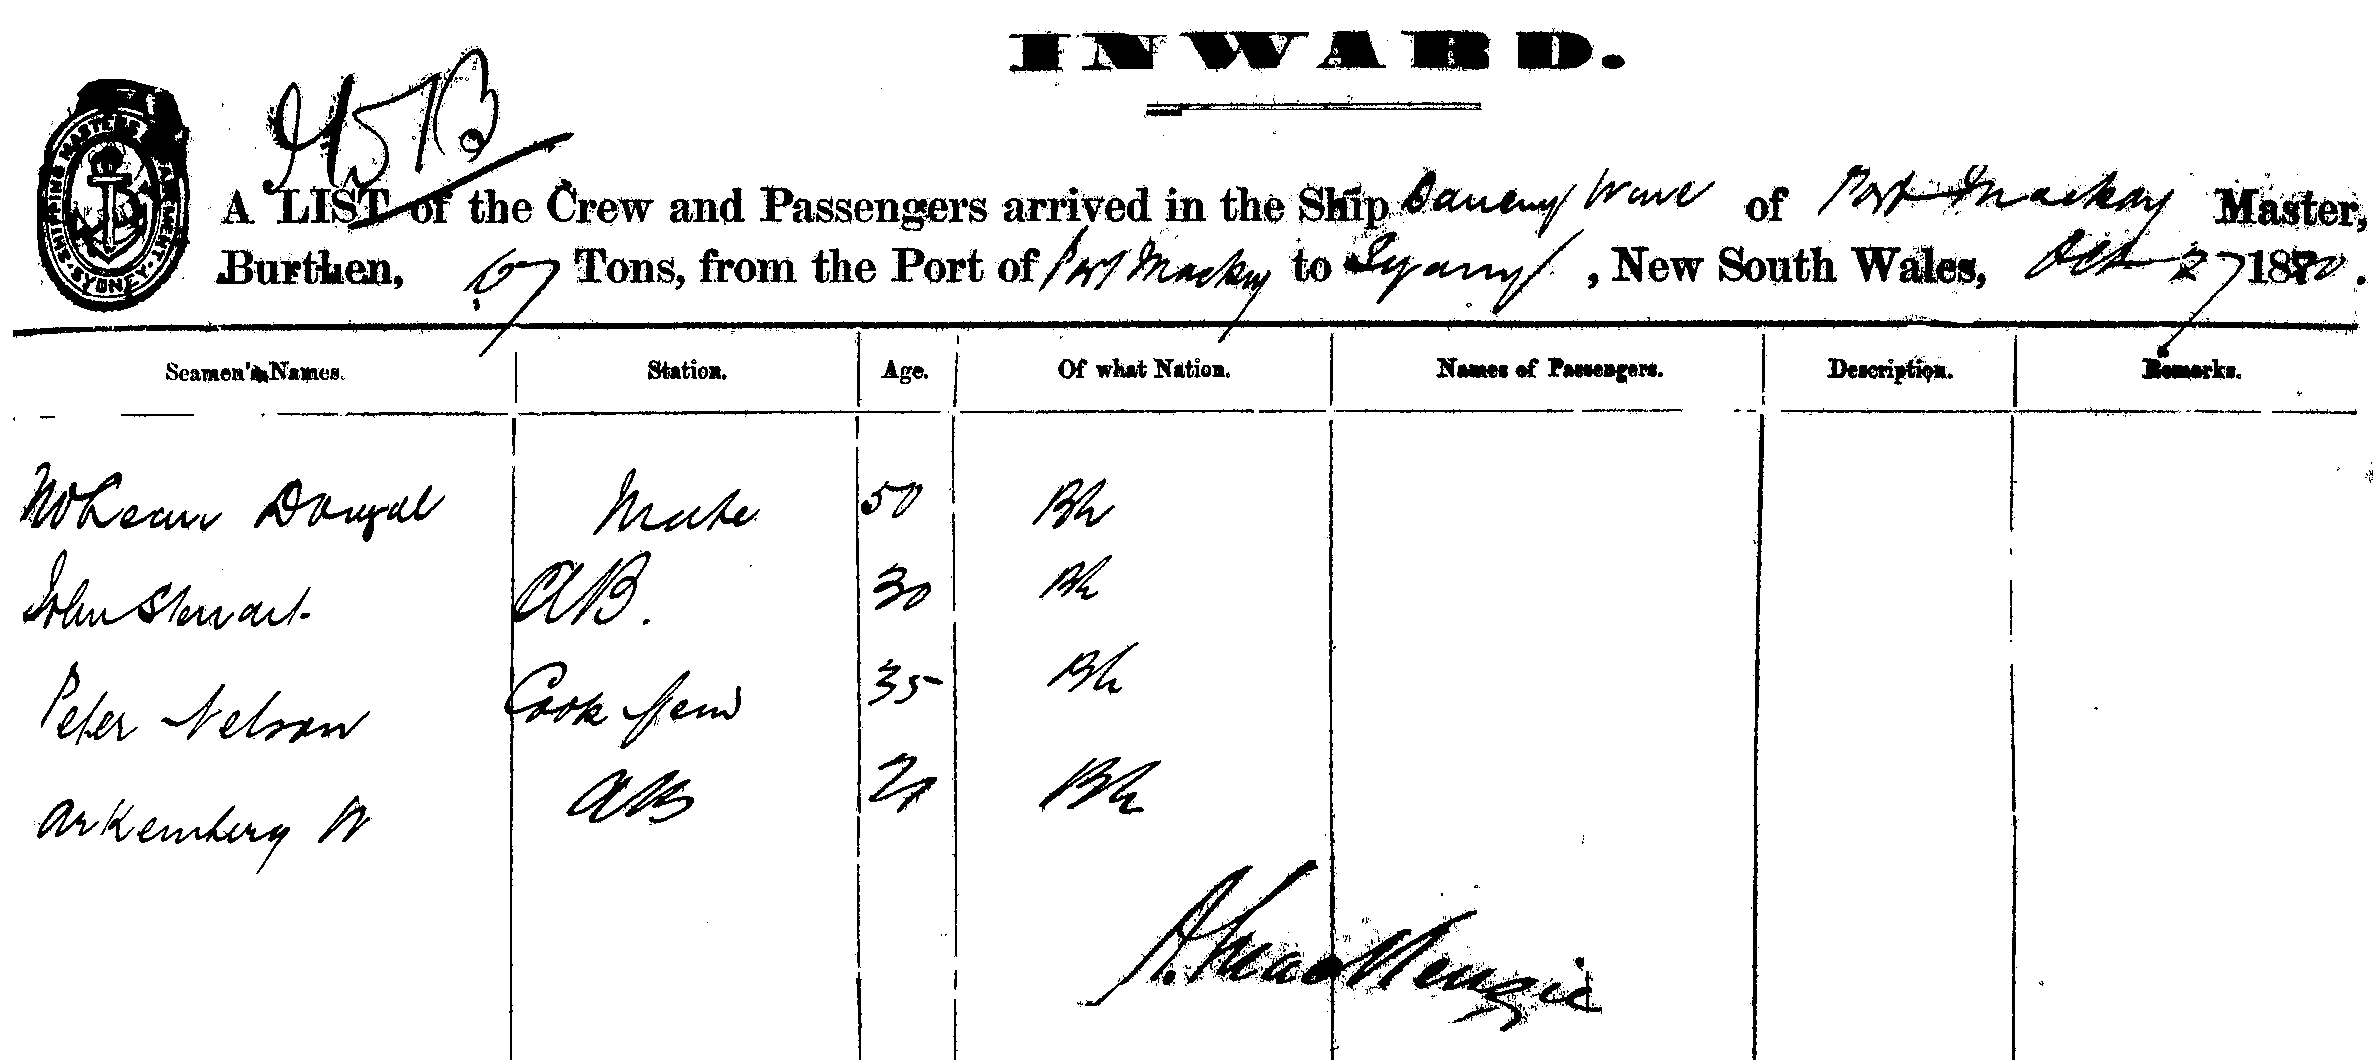 INWARD.
A LIST of the Crew and Passengers arrived in the Ship Wave of Port Mackay Master,
Burthen, 67 Tons, from the Port of Port Mackay to, New South Wales, Oct 27 1880.
Seamen's Names. Station. Age. Of what Nation. Names of Passengers. Description. Remarks.
McLean Dougal Mate 50 Bh
John Stewart AB. 30 Bh
Peter Nelson Cook 35 Bh
Arkemberg W AB Bh
A. MacKenzie